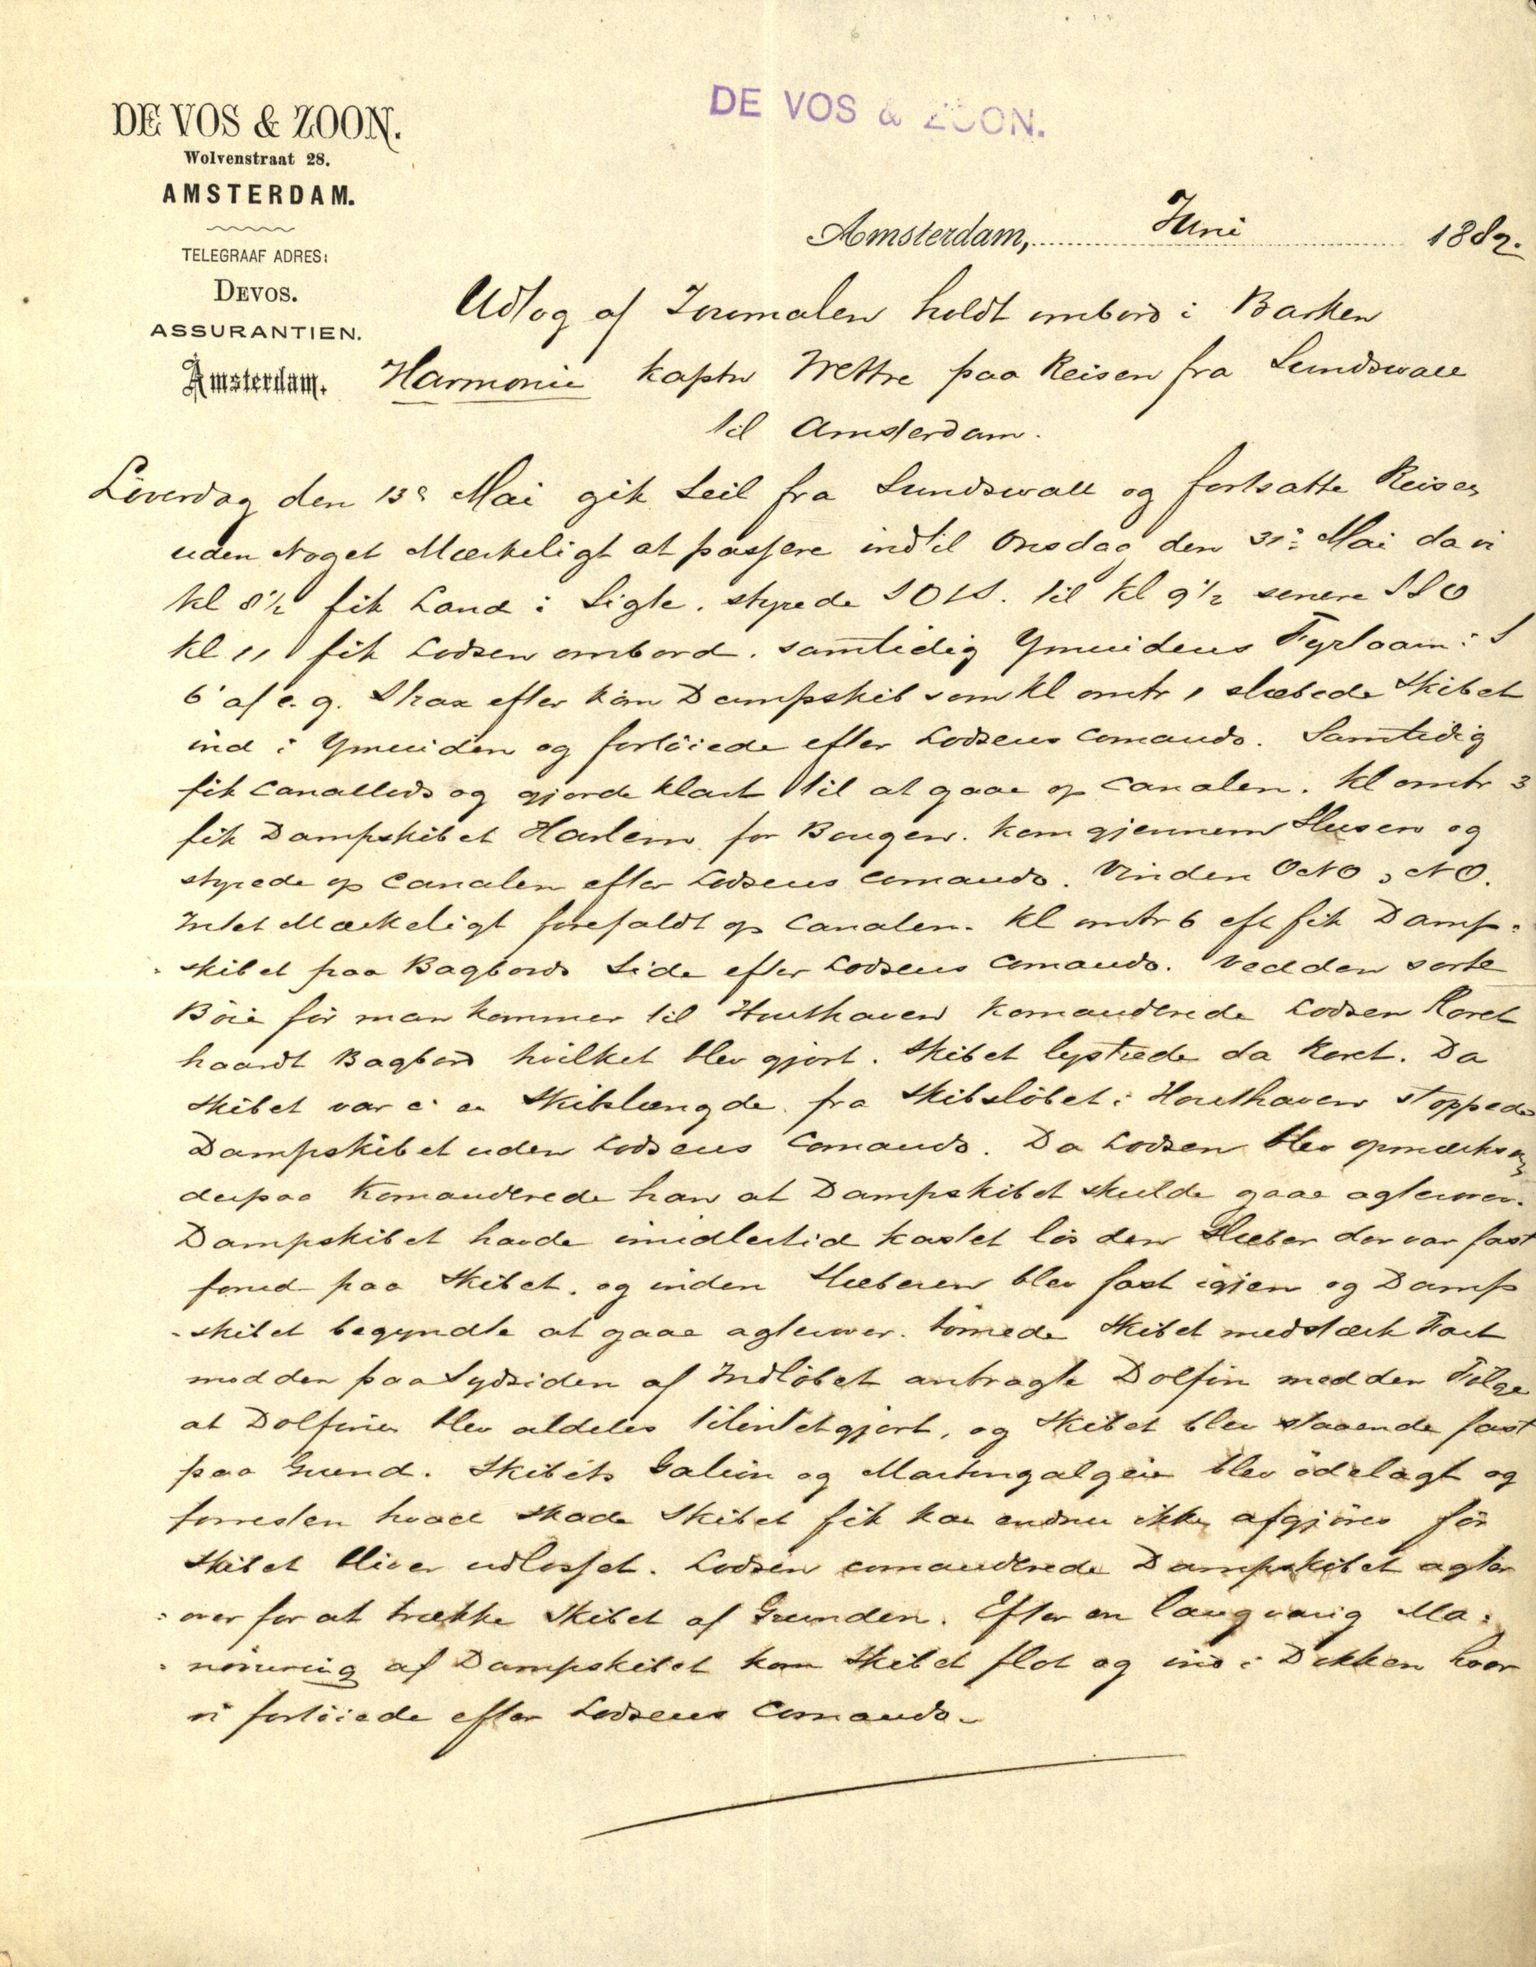 DE VOS & ZOON.
DE VOS & ZOON.
Wolvenstraat 28.
AMSTERDAM.
Amsterdam, Juni 1882.
TELEGRAAF ADRES:
DEVOS.
ASSURANTIEN.
Amsterdam.
Udtog af Journalen holdt ombord i Barken
Harmonie Kaptn Wettre paa Reisen fra Sundswall
til Amsterdam.
Löverdag den 13e Mai gik Seil fra Sundswall og fortsatte Reisen
uden Noget Mærkeligt at passere indtil Onsdag den 31e Mai da vi
kl 8½ fik Land i Sigte. styrede SOtS. til kl 9½ senere SSO
kl 11 fik Lodsen ombord. samtidig Ymuidens Fyrtaarn i S
6' af e. g. Strax efter kom Dampskib som kl omtr 1 slæbede Skibet
ind i Ymuiden og fortöiede efter Lodsens Comando. Samtidig
fik Canallods og gjorde klart til at gaae op Canalen. Kl omtr 3
fik Dampskibet Harlem for Bougen. kom gjennem Slusen og
styrede op Canalen efter Lodsens Comando. Vinden ONO, NO.
Intet Mærkeligt forefaldt op Canalen. Kl omtr 6 eft fik Damp-
-skibet paa Bagbords Side efter Lodsens Comando. Ved den sorte
Böie för man kommer til Houthaven Komanderede Lodsen Roret
haardt Bagbord hvilket blev gjort. Skibet lystrede da Roret. Da
Skibet var c: en Skibslængde fra Skibslöbet i Houthaven stoppede
Dampskibet uden Lodsens Comando. Da Lodsen blev opmærksom
derpaa Komanderede han at Dampskibet skulde gaae agterover.
Dampskibet havde imidlertid kastet lös den Slæber der var fast
forud paa Skibet. og inden Slæberen blev fast igjen og Damp
-skibet begyndte at gaae agterover. törnede Skibet med stærk Fart
mod den paa Sydsiden af Indlöbet anbragte Dolfin med den Fölge
at Dolfinen blev aldeles tilintetgjort, og Skibet blev staaende fast
paa Grund. Skibets Galion og Martingalgeie blev ödelagt og
forresten hvad Skade Skibet fik kan endnu ikke afgjöres för
Skibet bliver udlosset. Lodsen comanderede Dampskibet agter
-over for at trække Skibet af Grunden. Efter en langvarig Ma-
-növrering af Dampskibet kom Skibet flot og ind i Dokken hvor
vi fortöiede efter Lodsens Comando.